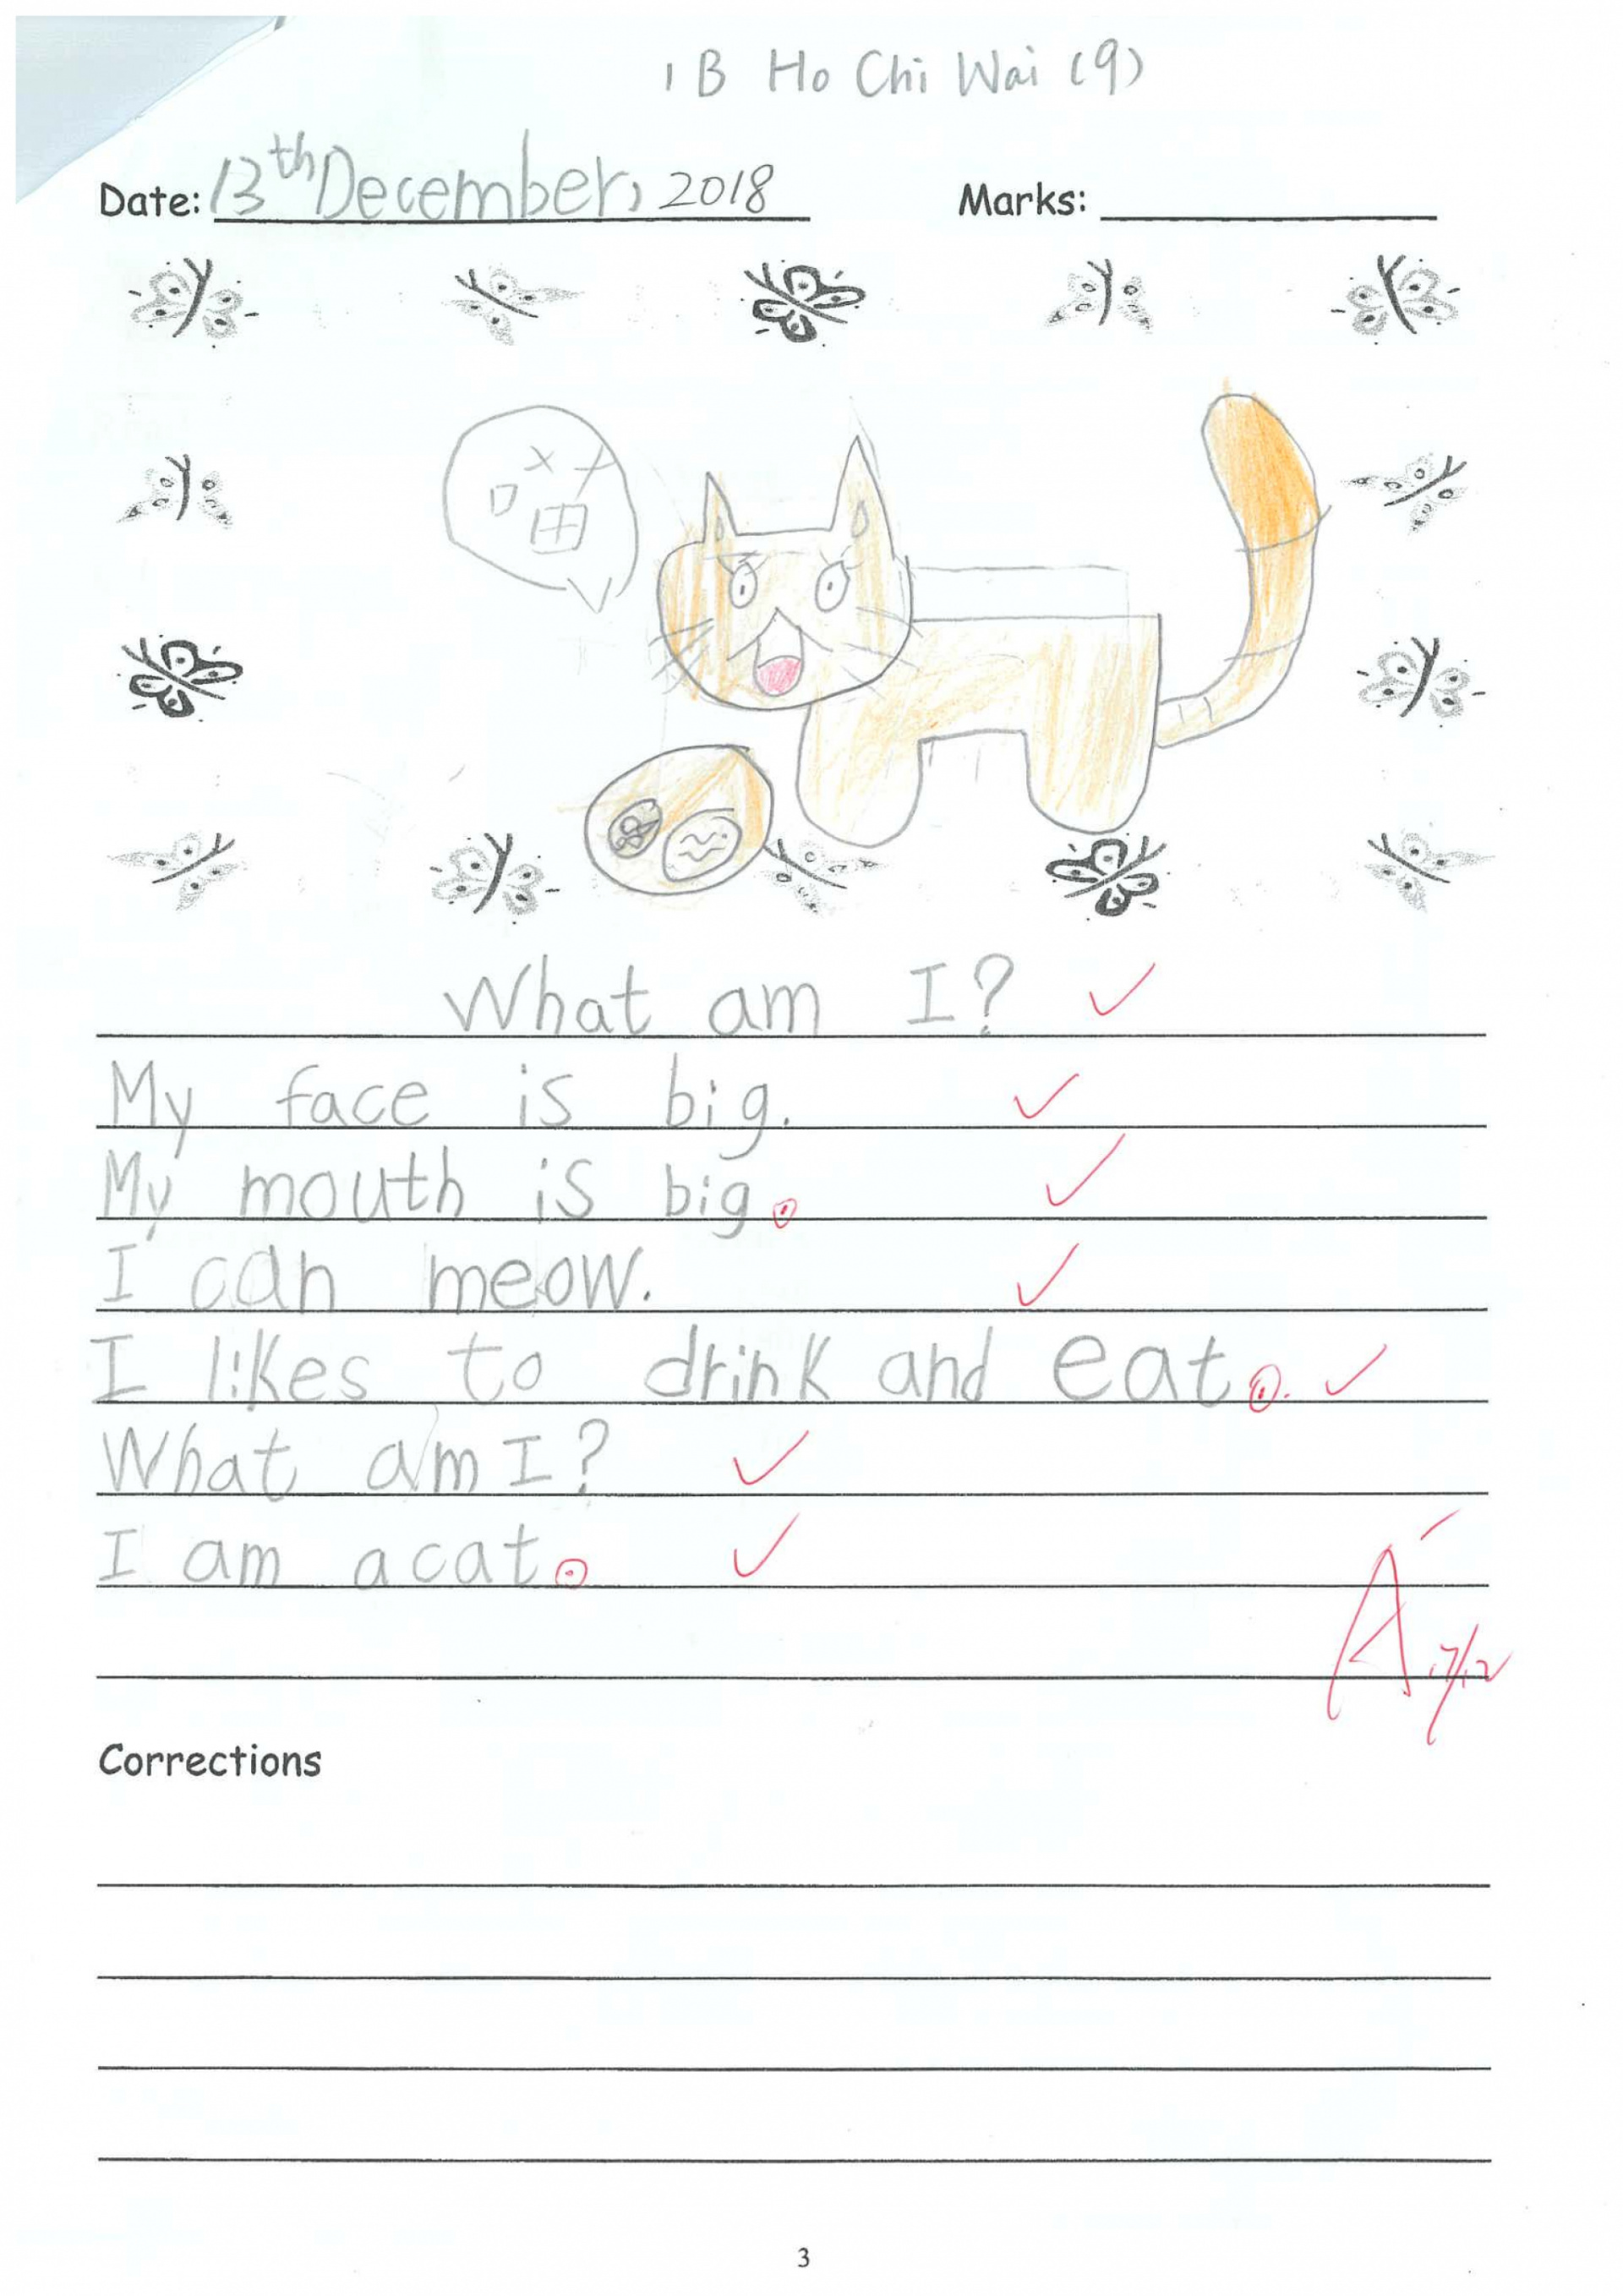 1B Ho Chi Wai (9)
Date: 13th December, 2018 Marks:
喵
What am I?
My face is big.
My mouth is big.
I can meow.
I likes to drink and eat.
What am I?
I am a cat.
A- 17/12
Corrections
3